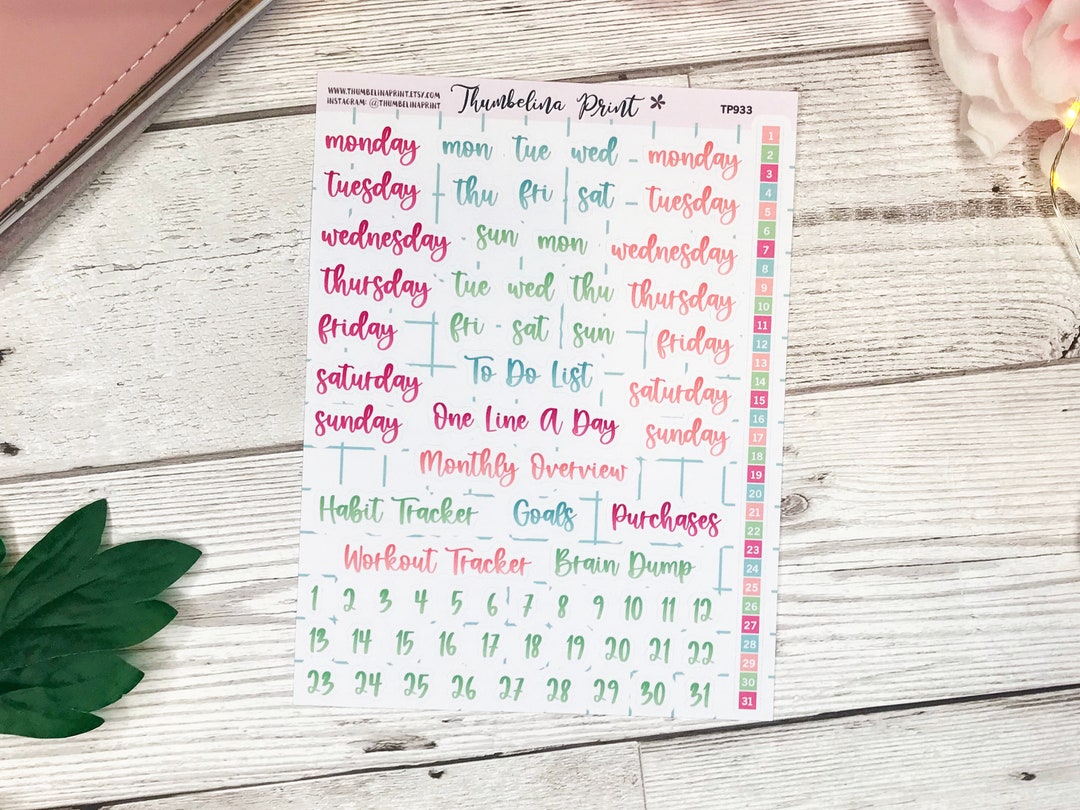 WWW.THUMBELINAPRINT.ETSY.COM
INSTAGRAM: @THUMBELINAPRINT
Thumbelina Print *
TP933
monday mon tue wed monday
tuesday thu fri sat tuesday
wednesday sun mon wednesday
thursday tue wed thu thursday
friday fri sat sun friday
saturday To Do List saturday
sunday One Line A Day sunday
Monthly Overview
Habit Tracker Goals Purchases
Workout Tracker Brain Dump
1 2 3 4 5 6 7 8 9 10 11 12
13 14 15 16 17 18 19 20 21 22
23 24 25 26 27 28 29 30 31
1
2
3
4
5
6
7
8
9
10
11
12
13
14
15
16
17
18
19
20
21
22
23
24
25
26
27
28
29
30
31